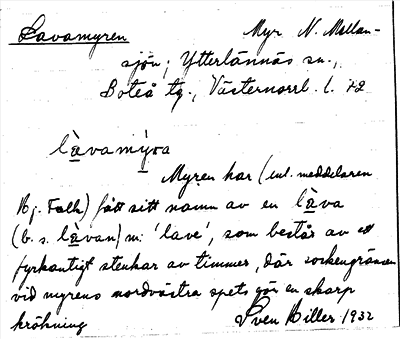 Lavamyren Myr N. Mellan-
sjön, Ytterlännäs sn.,
Boteå tg., Västernorrl. l.
làvamýra
Myren har (enl. meddelaren
Hj. Falk) fått sitt namn av en làva
(b. s. làvan) m: 'lave', som består av ett
fyrkantigt stenkar av timmer, där sockengränsen
vid myrens nordvästra spets gör en skarp
krökning Sven Hiller 1932